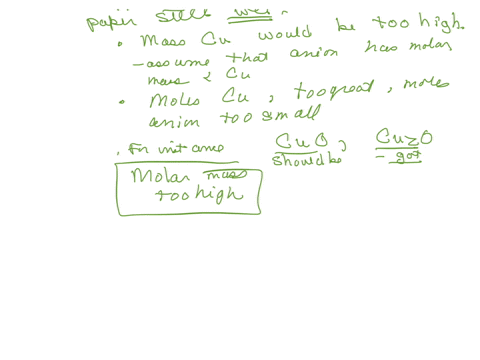 paper still wet.
• Mass Cu would be too high.
- assume that anion has molar
mass < Cu
• Moles Cu, too great, moles
anion too small
. For instance CuO, Cu2O
should be - got
Molar mass
too high